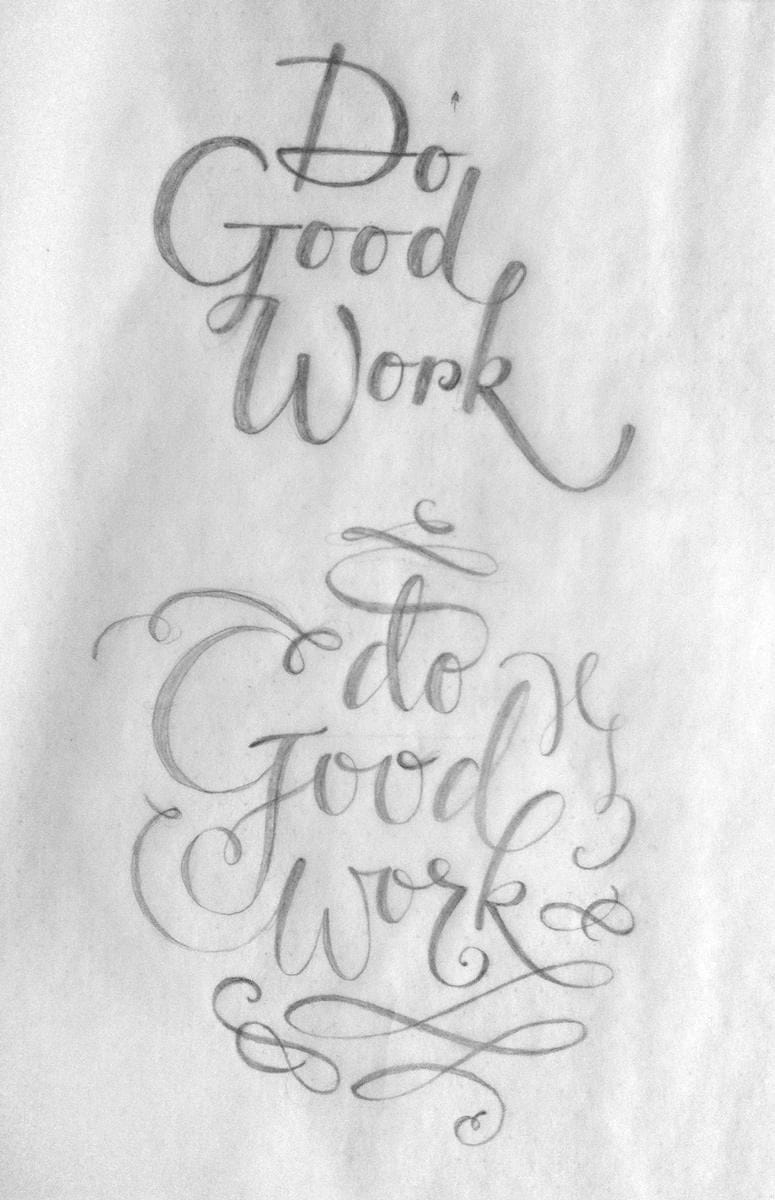 Do
Good
Work
do
Good
work